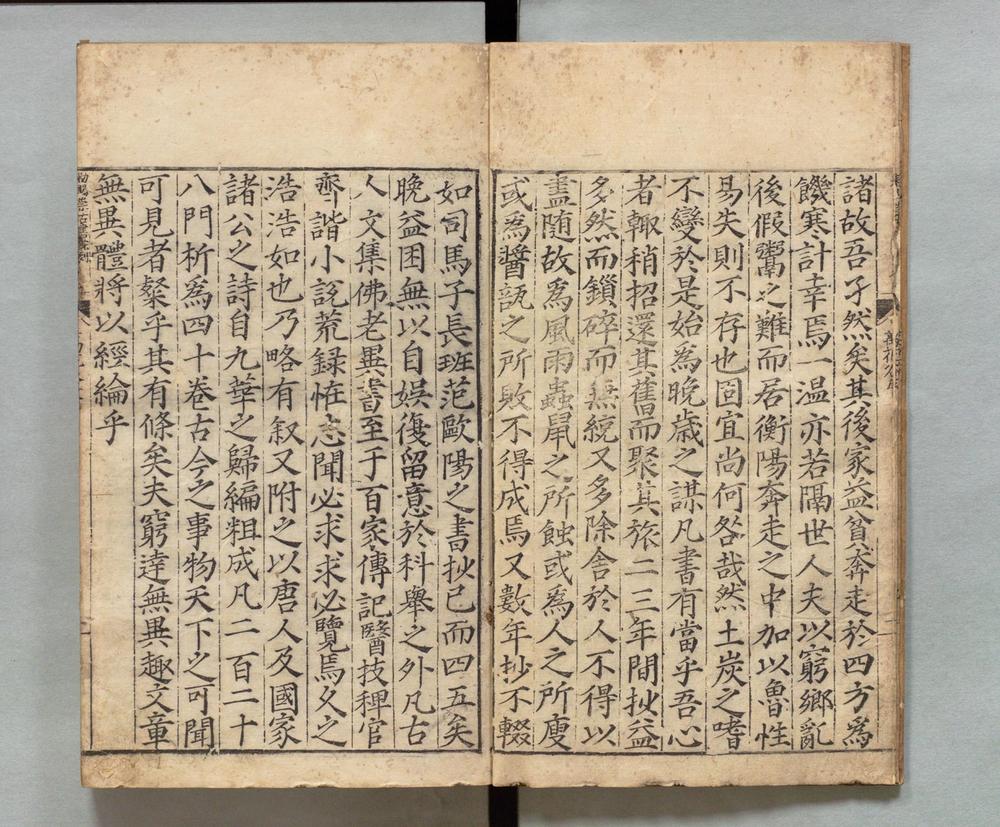 諸故吾孑然矣其後家益貧奔走於四方為
饑寒計幸焉一温亦若隔世人夫以窮鄉亂
後假鬻之難而居衡陽奔走之中加以魯性
易失則不存也固宜尚何咎哉然土炭之嗜
不變於是始為晚歲之謀凡書有當乎吾心
者輙稍招還其舊而聚其旅二三年間抄益
多然而鎖碎而無統又多除舍於人不得以
盡随故為風雨蟲鼠之所蝕或為人之所廋
或為醬瓿之所敗不得成焉又數年抄不輟
如司馬子長班范歐陽之書抄已而四五矣
晚益困無以自娛復留意於科舉之外凡古
人文集佛老異書至于百家傳記醫技稗官
齊諧小說荒録恠志聞必求求必覽焉久之
浩浩如也乃略有叙又附之以唐人及國家
諸公之詩自九華之歸編粗成凡二百二十
八門析為四十卷古今之事物天下之可聞
可見者粲乎其有條矣夫窮達無異趣文章
無異體將以經綸乎